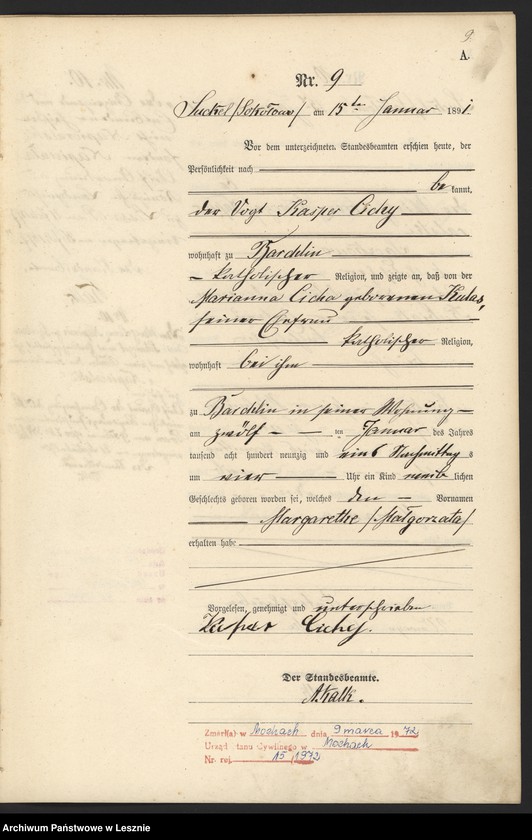 9.
A.
Nr. 9
Suckel /Sokołowo/ am 15ten Januar 1891.
Vor dem unterzeichneten Standesbeamten erschien heute, der
Persönlichkeit nach
bekannt,
der Vogt Kasper Cichy
wohnhaft zu Bardelin
katholischer Religion, und zeigte an, daß von der
Marianna Cicha geborenen Kulas,
seiner Ehefrau
katholischer Religion,
wohnhaft bei ihm
zu Bardelin in seiner Wohnung
am zwölf ten Januar des Jahres
tausend acht hundert neunzig und eins Nachmittags
um vier Uhr ein Kind weib lichen
Geschlechts geboren worden sei, welches den Vornamen
Margarethe /Małgorzata/
erhalten habe
Vorgelesen, genehmigt und unterschrieben
Kasper Cichy.
Der Standesbeamte.
A. Kalk.
Zmarł(a) w Mochach dnia 9 marca 1972
Urząd Stanu Cywilnego w Mochach
Nr. rej. 15/1972
Archiwum Państwowe w Lesznie